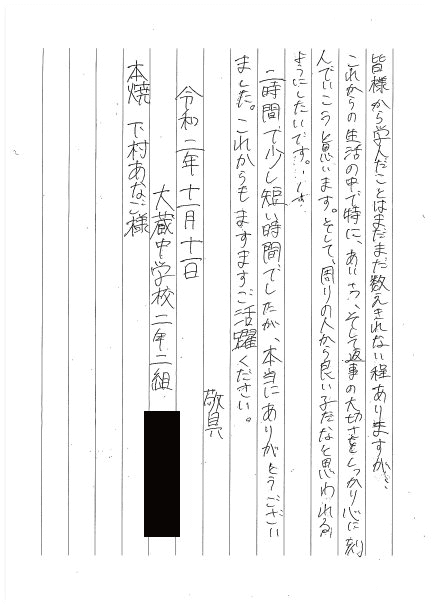 皆様から学んだことはまだまだ数えきれない程ありますが、
これからの生活の中で特に、あいさつ、そして返事の大切さをしっかり心に刻
んでいこうと思います。そして、周りの人から良い子だなと思われる
ようにしたいです。
二時間で少し短い時間でしたが、本当にありがとうござい
ました。これからもますますご活躍ください。
敬具
令和二年十一月十一日
大蔵中学校二年二組
本焼 下村あなご様